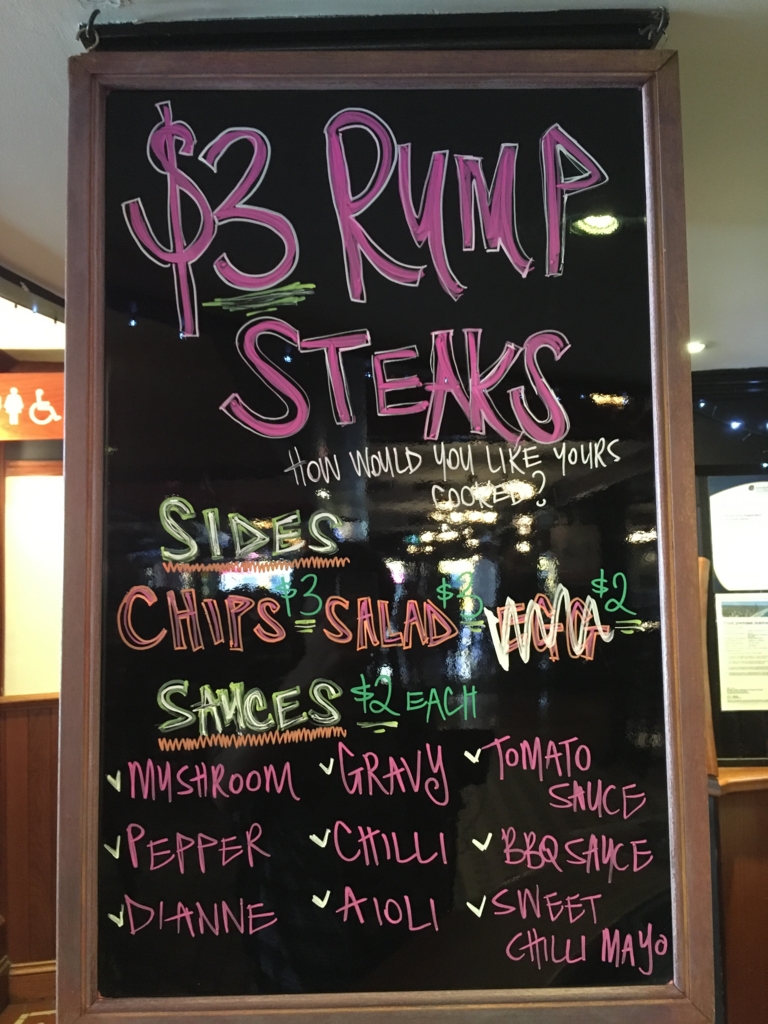 $3 RUMP
STEAKS
HOW WOULD YOU LIKE YOURS
COOKED?
SIDES
CHIPS $3 SALAD $3 EGG $2
SAUCES $2 EACH
✓ MUSHROOM ✓ GRAVY ✓ TOMATO SAUCE
✓ PEPPER ✓ CHILLI ✓ BBQ SAUCE
✓ DIANNE ✓ AIOLI ✓ SWEET CHILLI MAYO